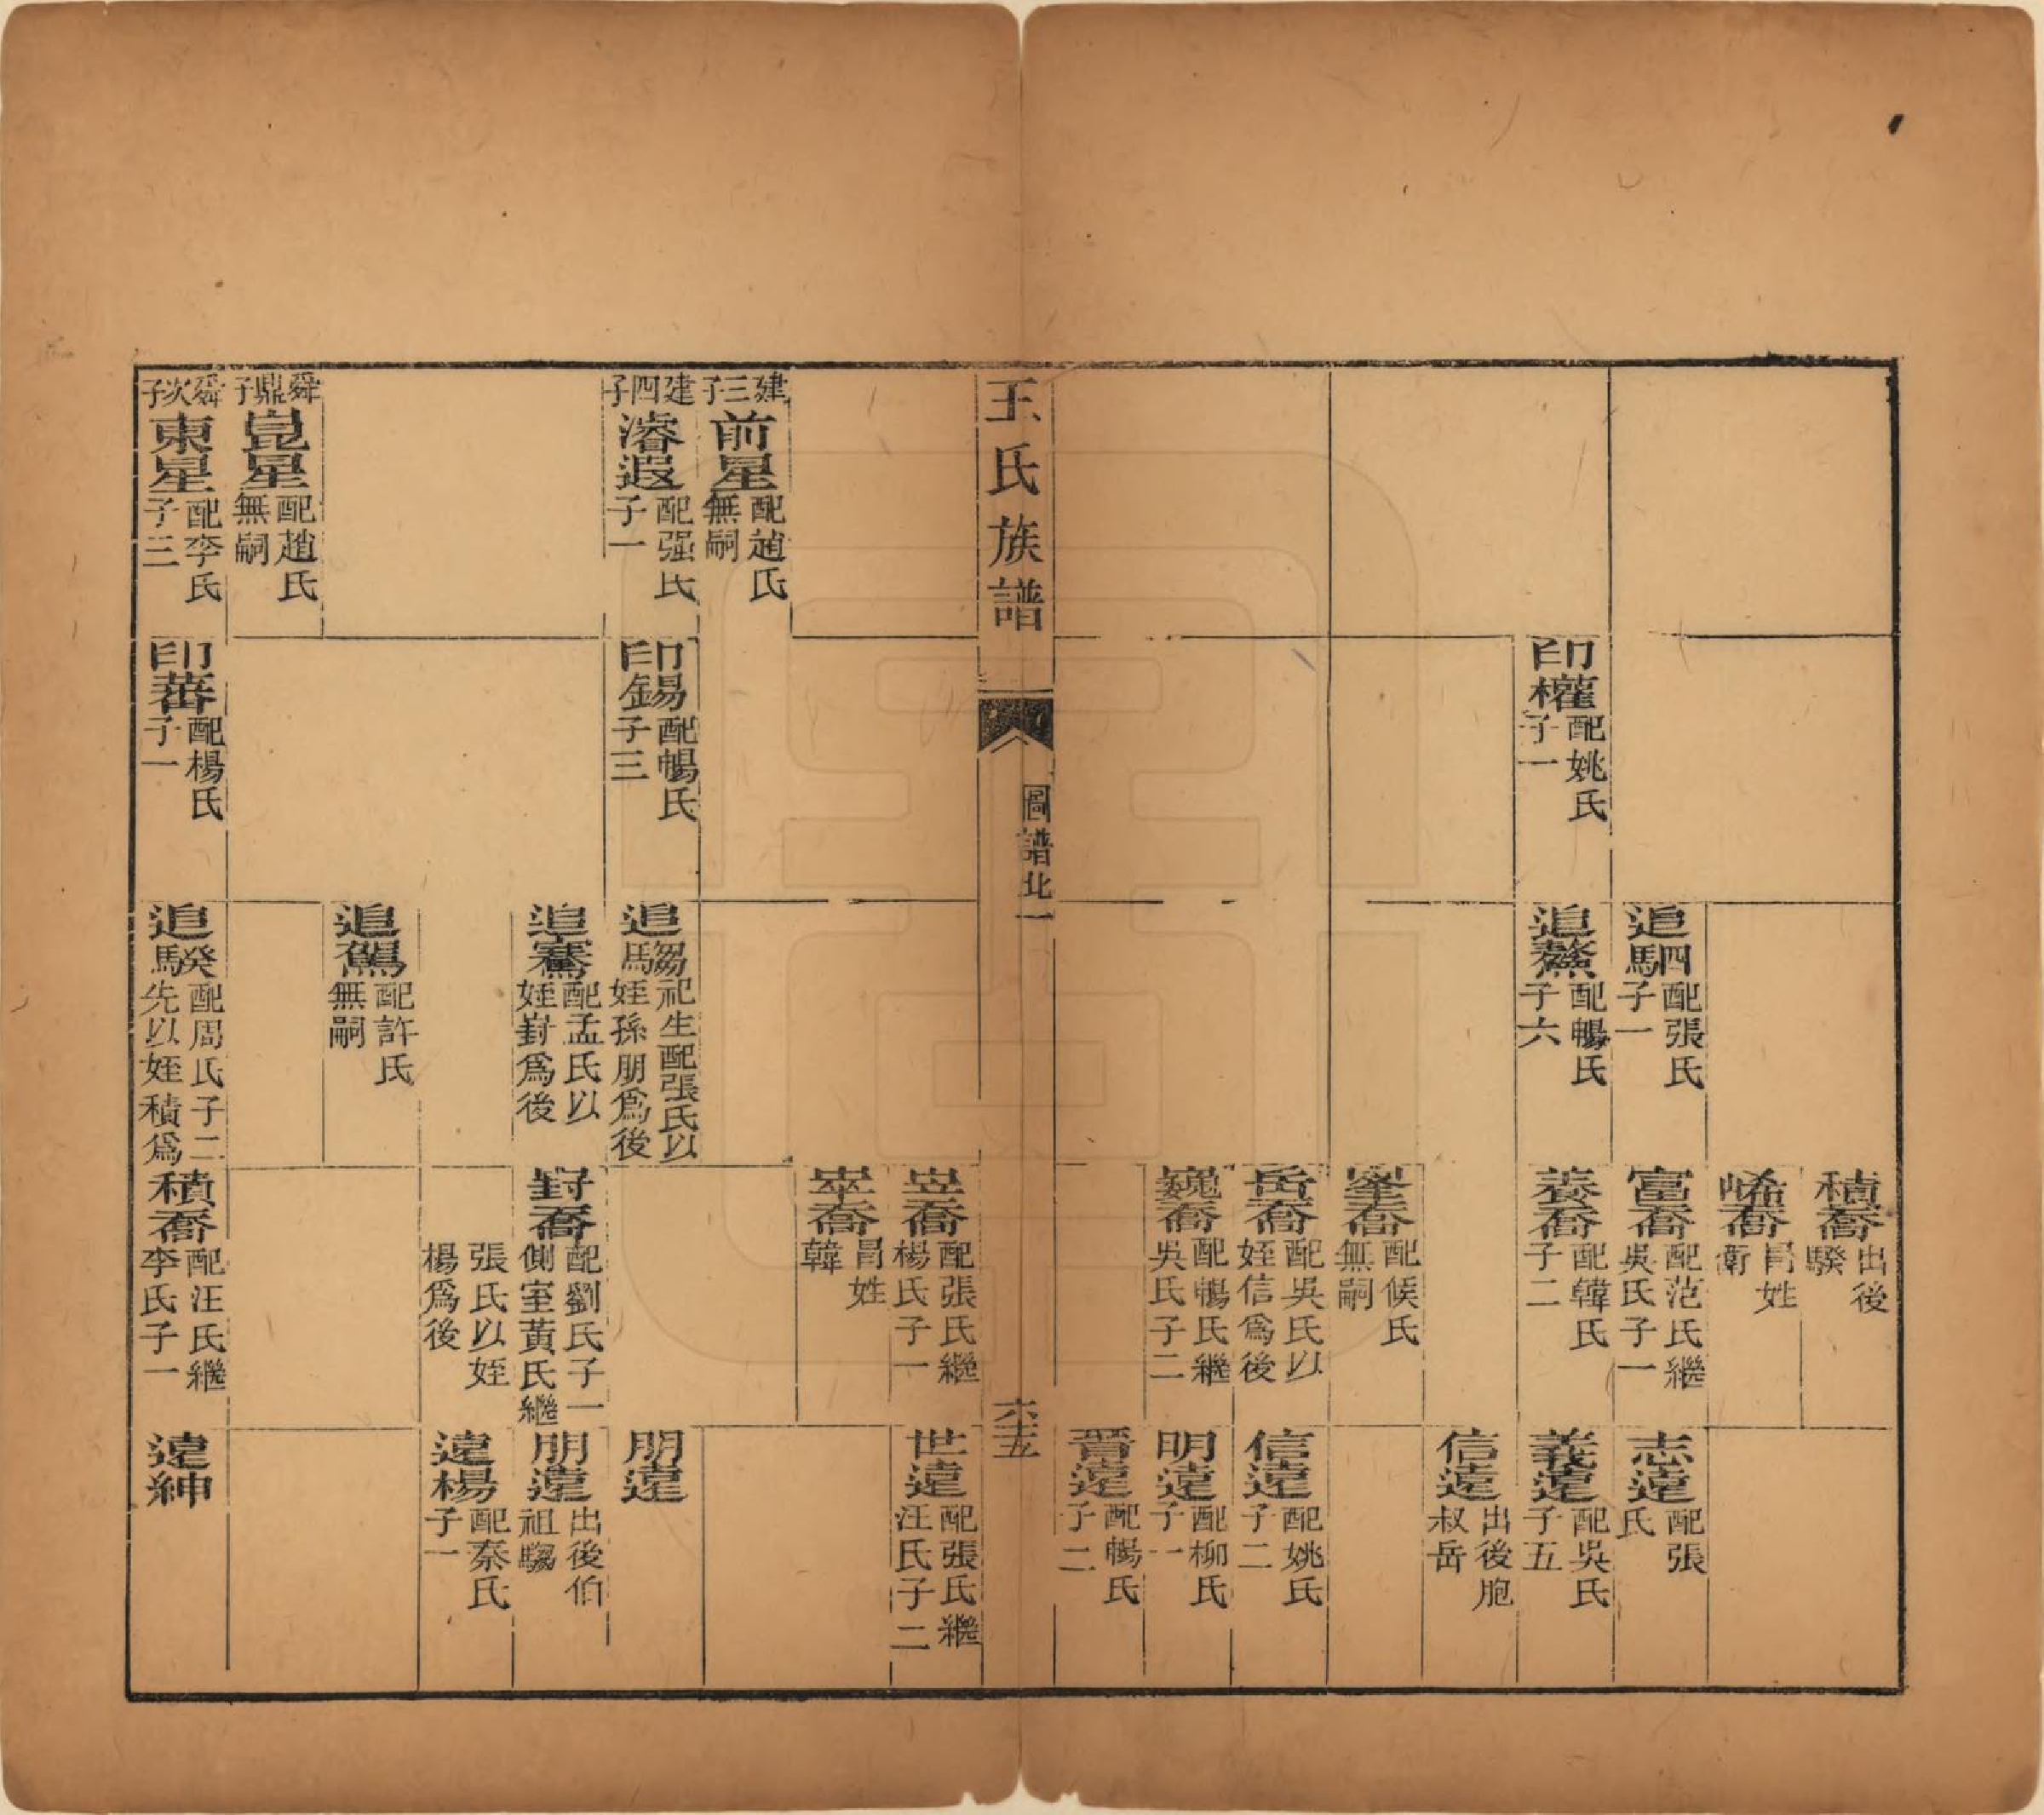 印權 配姚氏 子一
追駟 配張氏 子一
追驁 配暢氏 子六
積喬 出後騤
㟓喬 冒姓衛
富喬 配范氏繼吳氏子一
養喬 配韓氏 子二
峯喬 配候氏 無嗣
岳喬 配吳氏以姪信爲後
巍喬 配暢氏繼吳氏子二
志遠 配張氏
義遠 配吳氏 子五
信遠 出後胞叔岳
信遠 配姚氏 子二
明遠 配柳氏 子一
晉遠 配暢氏 子二
王氏族譜
圖譜北一
六十五
建三子 前星 配趙氏 無嗣
建四子 濬遐 配强氏 子一
舜鼎子 崑星 配趙氏 無嗣
舜次子 東星 配李氏 子三
印錫 配暢氏 子三
印蕃 配楊氏 子一
追騶 祀生配張氏以姪孫朋爲後
追騫 配孟氏以姪對爲後
追駕 配許氏 無嗣
追騤 配周氏子二先以姪積爲
岦喬 配張氏繼楊氏子一
崒喬 冒姓韓
對喬 配劉氏子一側室黃氏繼
張氏以姪楊爲後
積喬 配汪氏繼李氏子一
世遠 配張氏繼汪氏子二
朋遠
朋遠 出後伯祖騶
遠楊 配秦氏 子一
遠紳